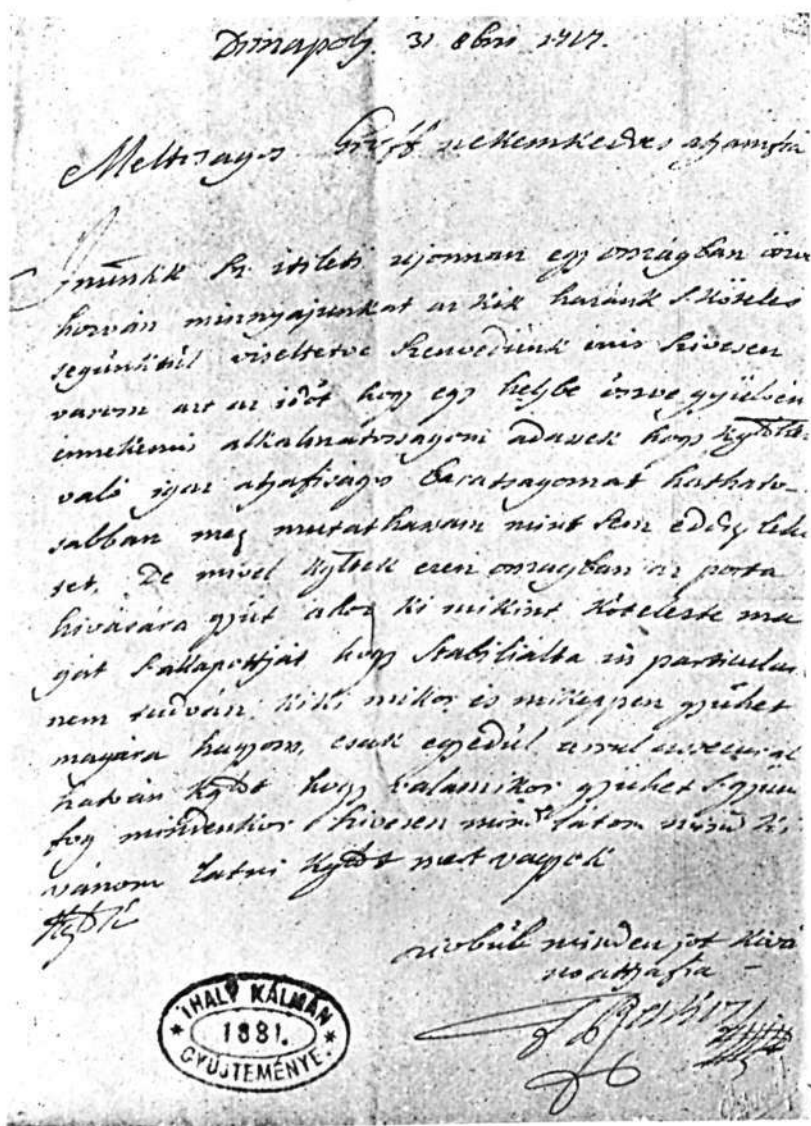 Drinapoly 31 8bri 1717.
Meltosagos Gróff nekem kedves atyamfia
Istenünk Sz. itileti ujonnan egy országban
horván minnyájunkat az kik hazánk s köteles
segünktül viseltetve szenvedünk énis szivesen
varom azt az idöt hogy egy helybe öszve gyülvén
ennekemis alkalmatosságom adassék hogy
való igaz atyafiságos baratsagomat hathato-
sabban meg mutathassam mint sem eddig
set, De mivel ezen országban az porta
hivására gyüt ahoz ki mikint köteleszte ma
gát s allapottyát hogy stabiliálta in particulari
nem tudván, kiki mikor és miképpen gyühet
magára hagyom, csak egyedül azzal
hatván kgldt hogy valamikor gyühet s gyün
fog mindenkor szivesen latom mind ki
vánom latni kgldt mert vagyok
kgldk
szivbül minden jót kivá
no attyafia
Rakoczi
THALY KÁLMÁN
1881.
GYŰJTEMÉNYE.